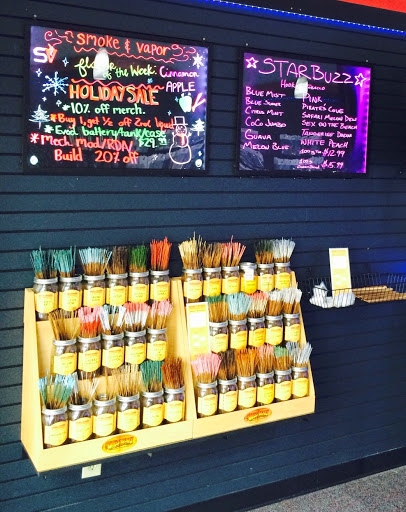 SV
smoke & vapor
flavor of the Week: Cinnamon Apple
HOLIDAY SALE
* 10% off merch.
* Buy 1, get 1/2 off 2nd liquid
* Evod battery/tank/case $29.99
* Mech. mod/RDA
Build 20% off
STARBUZZ
Hookah Tobacco
BLUE MIST
PINK
PIRATE'S CAVE
CITRUS MIST
SAFARI MELON DEW
COCO JUMBO
SEX ON THE BEACH
GUAVA
WHITE PEACH
MELON BLUE
$12.99
$15.99